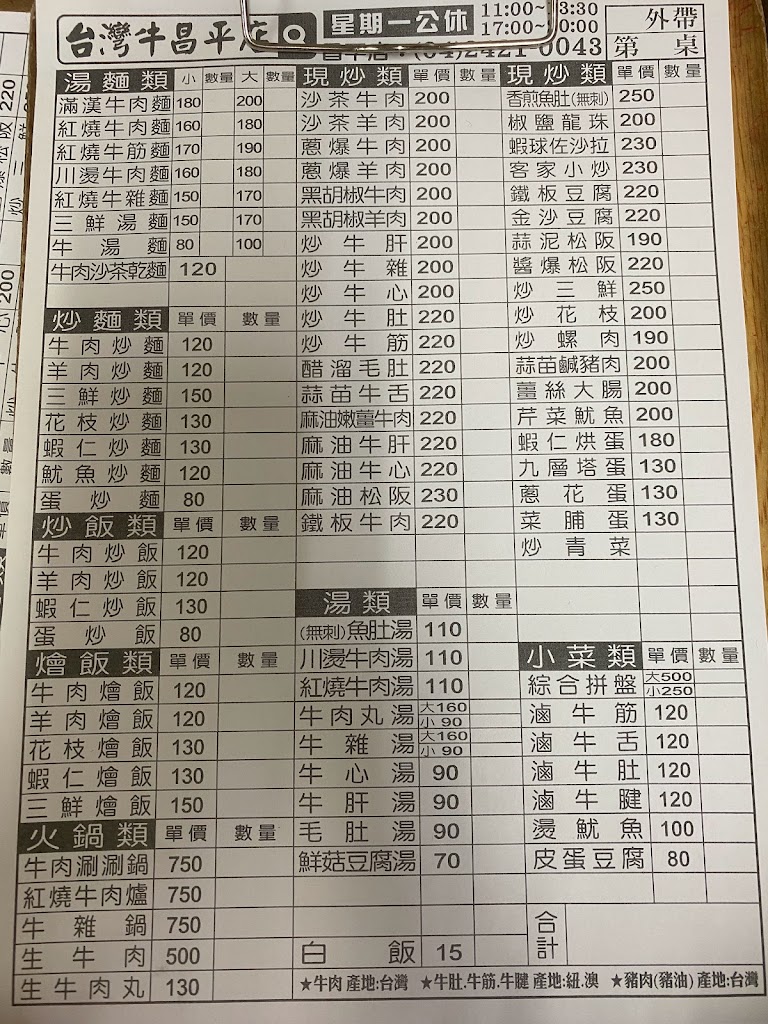 台灣牛昌平店
星期一公休
11:00~
3:30
17:00~
0:00
(04)2421-0043
外帶
第 桌
湯麵類 小 數量 大 數量
滿漢牛肉麵 180 200
紅燒牛肉麵 160 180
紅燒牛筋麵 170 190
川燙牛肉麵 160 180
紅燒牛雜麵 150 170
三鮮湯麵 150 170
牛湯麵 80 100
牛肉沙茶乾麵 120
炒麵類 單價 數量
牛肉炒麵 120
羊肉炒麵 120
三鮮炒麵 150
花枝炒麵 130
蝦仁炒麵 130
魷魚炒麵 120
蛋炒麵 80
炒飯類 單價 數量
牛肉炒飯 120
羊肉炒飯 120
蝦仁炒飯 130
蛋炒飯 80
燴飯類 單價 數量
牛肉燴飯 120
羊肉燴飯 120
花枝燴飯 130
蝦仁燴飯 130
三鮮燴飯 150
火鍋類 單價 數量
牛肉涮涮鍋 750
紅燒牛肉爐 750
牛雜鍋 750
生牛肉 500
生牛肉丸 130
現炒類 單價 數量
沙茶牛肉 200
沙茶羊肉 200
蔥爆牛肉 200
蔥爆羊肉 200
黑胡椒牛肉 200
黑胡椒羊肉 200
炒牛肝 200
炒牛雜 200
炒牛心 200
炒牛肚 220
炒牛筋 220
醋溜毛肚 220
蒜苗牛舌 220
麻油嫩薑牛肉 220
麻油牛肝 220
麻油牛心 220
麻油松阪 230
鐵板牛肉 220
湯類 單價 數量
(無刺)魚肚湯 110
川燙牛肉湯 110
紅燒牛肉湯 110
牛肉丸湯 大160 小90
牛雜湯 大160 小90
牛心湯 90
牛肝湯 90
毛肚湯 90
鮮菇豆腐湯 70
白飯 15
現炒類 單價 數量
香煎魚肚(無刺) 250
椒鹽龍珠 200
蝦球佐沙拉 230
客家小炒 230
鐵板豆腐 220
金沙豆腐 220
蒜泥松阪 190
醬爆松阪 220
炒三鮮 250
炒花枝 200
炒螺肉 190
蒜苗鹹豬肉 200
薑絲大腸 200
芹菜魷魚 200
蝦仁烘蛋 180
九層塔蛋 130
蔥花蛋 130
菜脯蛋 130
炒青菜
小菜類 單價 數量
綜合拼盤 大500 小250
滷牛筋 120
滷牛舌 120
滷牛肚 120
滷牛腱 120
燙魷魚 100
皮蛋豆腐 80
合計
★牛肉 產地:台灣 ★牛肚.牛筋.牛腱 產地:紐.澳 ★豬肉(豬油) 產地:台灣